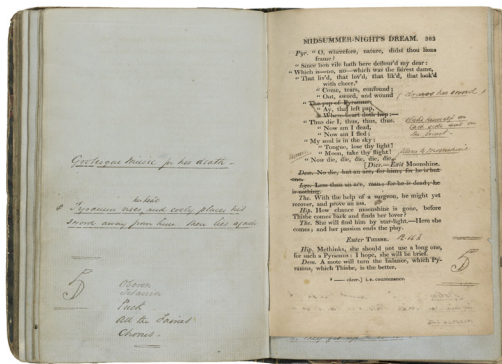 Grotesque Music for his death.
Pyramus rises and coolly places his
sword away from him then dies again
Oberon
Titania
Puck
All the Fairies
Chorus.
MIDSUMMER-NIGHT'S DREAM. 303
Pyr. "O, wherefore, nature, didst thou lions
frame?
"Since lion vile hath here deflour'd my dear:
"Which is—no, no—which was the fairest dame,
"That liv'd, that lov'd, that lik'd, that look'd
with cheer.*
"Come, tears, confound;
"Out, sword, and wound
"The pap of Pyramus:
"Ay, that left pap,
"Where heart doth hop:—
"Thus die I, thus, thus, thus.
"Now am I dead,
"Now am I fled;
"My soul is in the sky:
"Tongue, lose thy light!
"Moon, take thy flight!
"Now die, die, die, die, die.
[Dies.—Exit Moonshine.
Dem. No die, but an ace, for him; for he is but
one.
Lys. Less than an ace, man; for he is dead; he
is nothing.
The. With the help of a surgeon, he might yet
recover, and prove an ass.
Hip. How chance moonshine is gone, before
Thisbe comes back and finds her lover?
The. She will find him by star-light.—Here she
comes; and her passion ends the play.
Enter THISBE.
Hip. Methinks, she should not use a long one,
for such a Pyramus: I hope, she will be brief.
Dem. A mote will turn the balance, which Py-
ramus, which Thisbe, is the better.